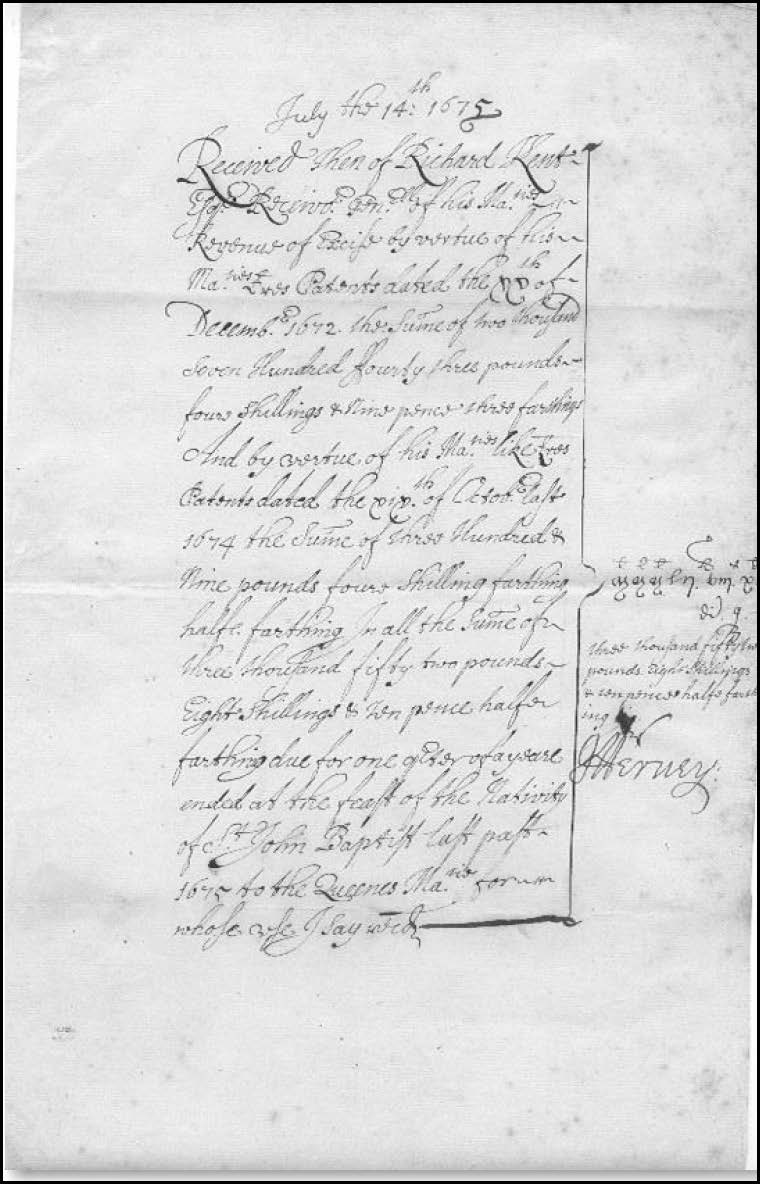 July the 14:th 1675
Received then of Richard Kent
Esqr. Receivor. Gen.ll of his Ma.ties
Revenue of Excise by vertue of his
Ma.ties Lres Patents dated the xxth of
Decemb.r 1672. the Sum̄e of two thousand
Seven Hundred ffourty three pounds
foure Shillings & Nine pence three farthings
And by vertue of his Ma.ties like Lres
Patents dated the xix.th of Octob.r last
1674 the Sum̄e of three Hundred &
Nine pounds foure Shilling farthing
halfe farthing In all the Sum̄e of
three thousand fifty two pounds
Eight Shillings & ten pence halfe
farthing due for one qrter of a yeare
ended at the feast of the Nativity
of St. John Baptist last past
1675 to the Queenes Ma.tie for
whose vse I say recd
three thousand fifty two
pounds Eight Shillings
& ten pence halfe farth
ing
J Hervey.